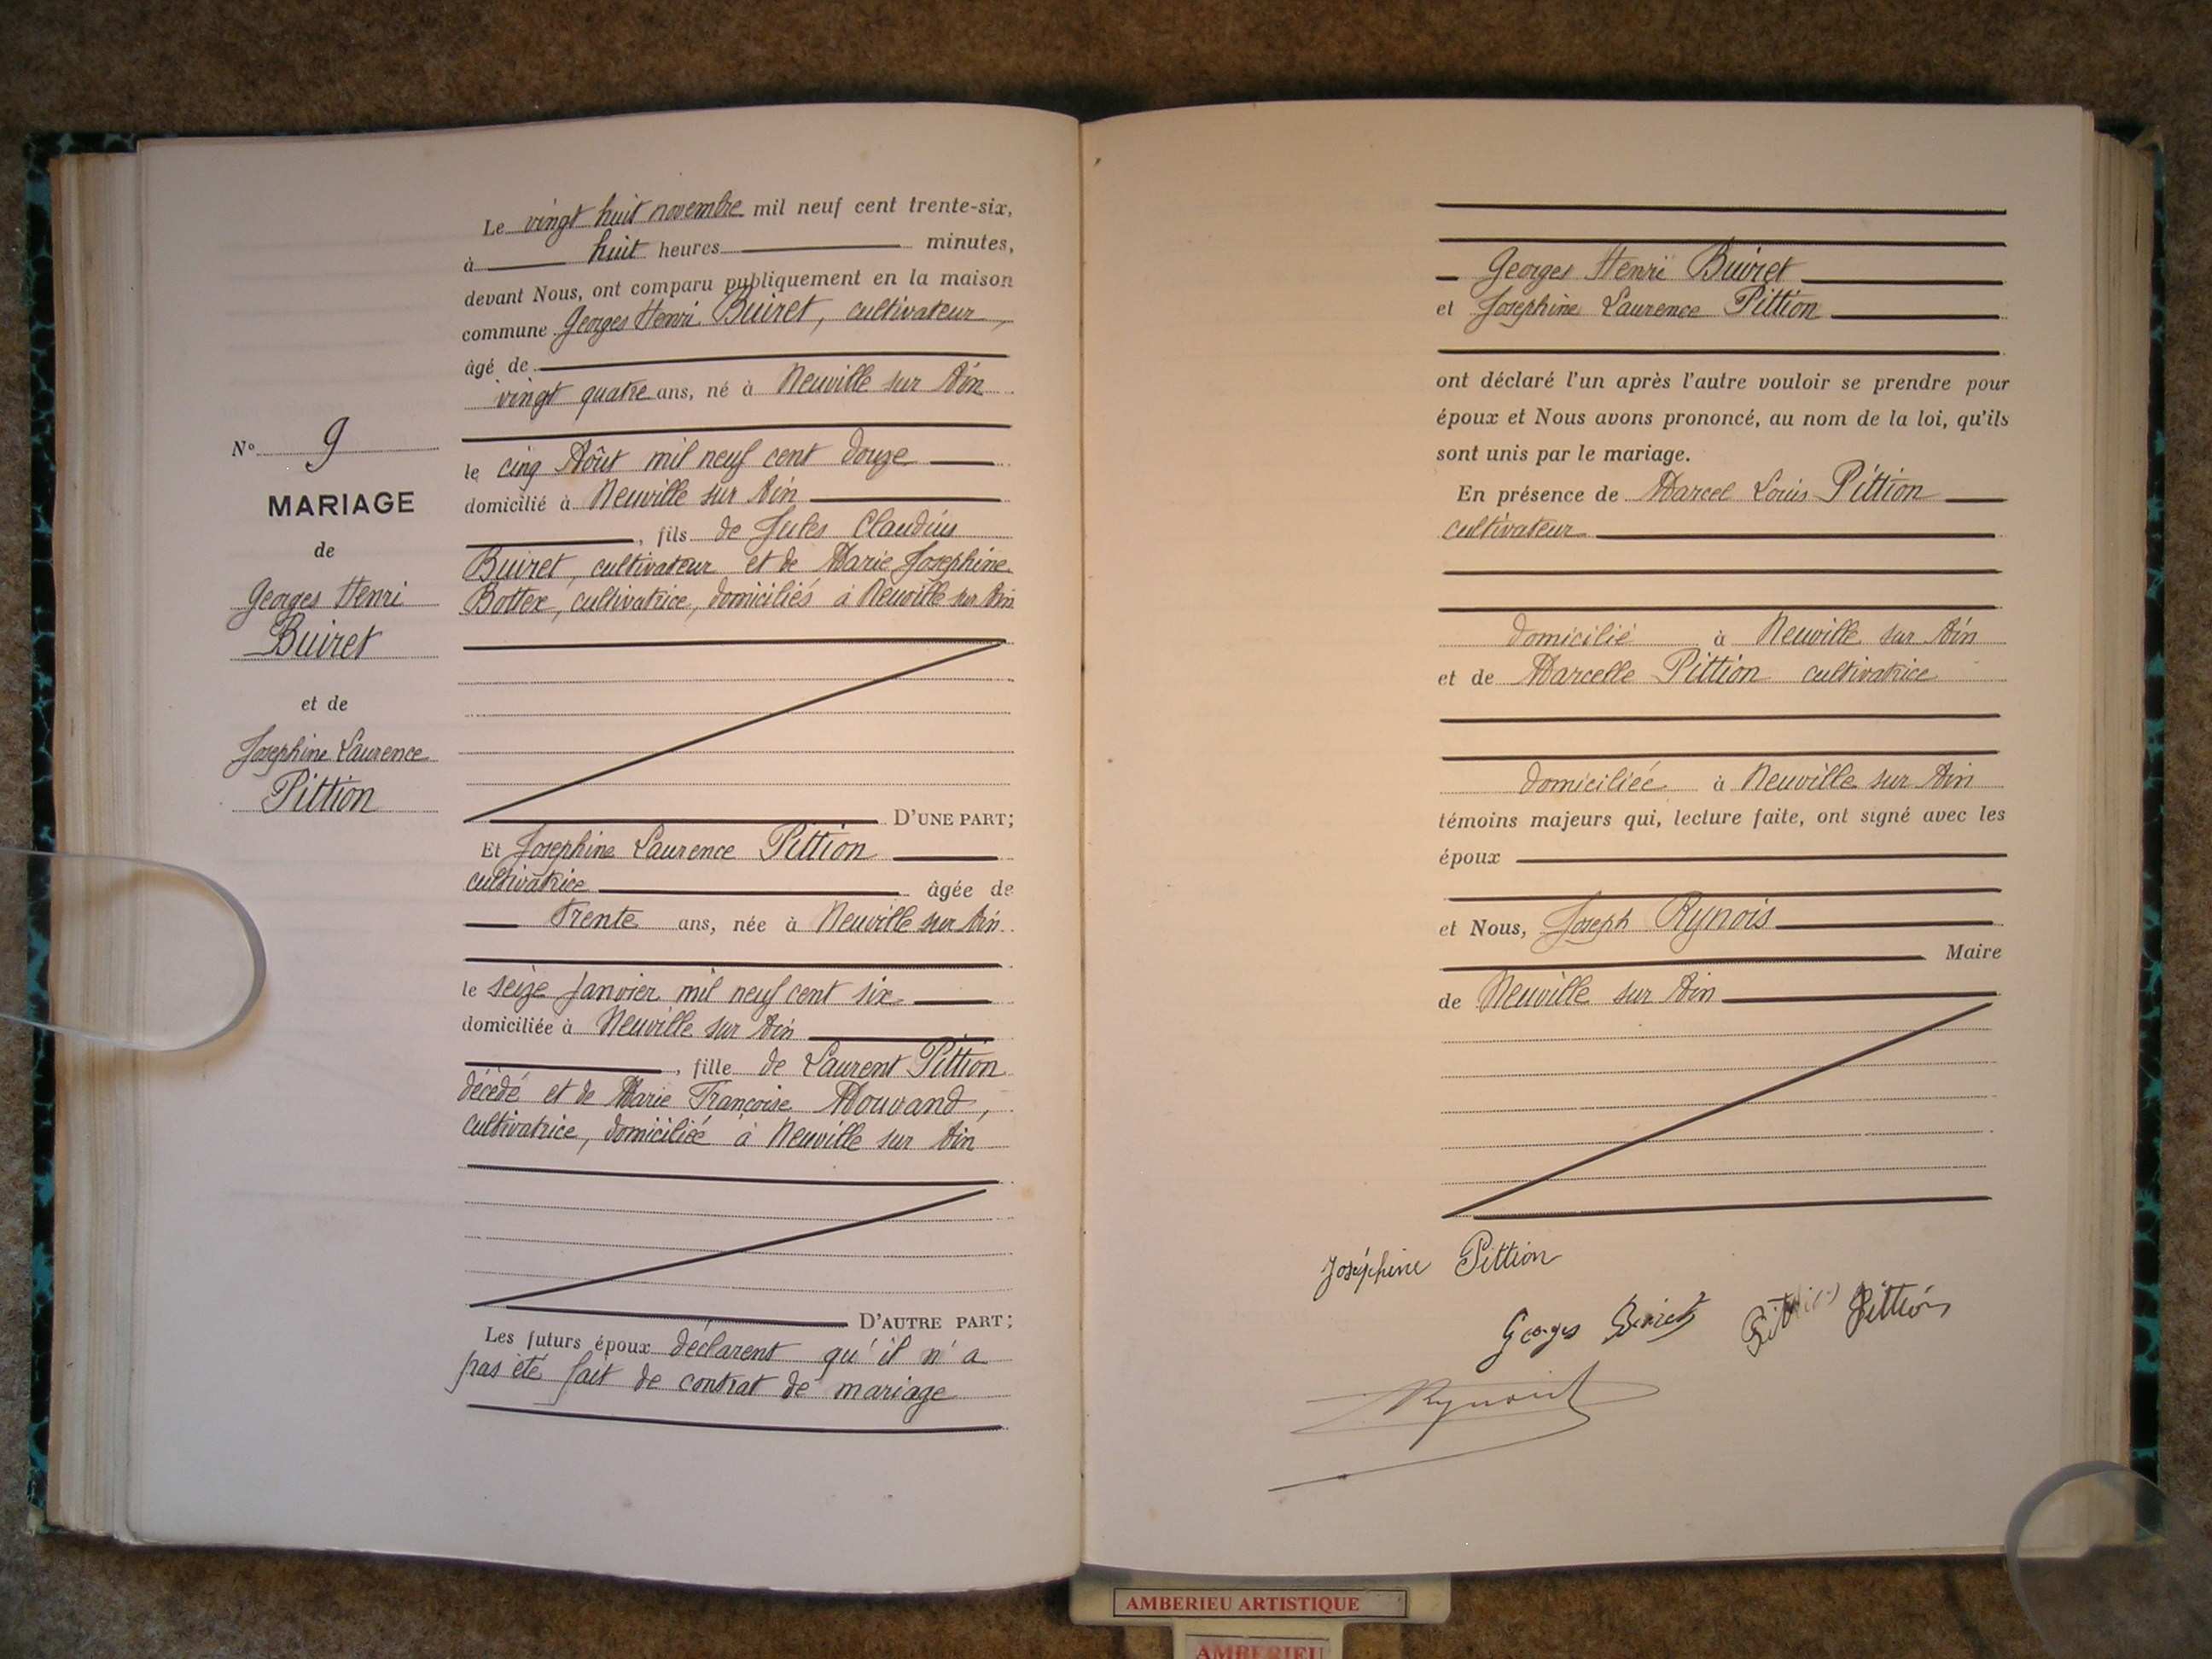 Le vingt huit novembre mil neuf cent trente-six,
à huit heures minutes,
devant Nous, ont comparu publiquement en la maison
commune Georges Henri Buiret, cultivateur,
âgé de
vingt quatre ans, né à Neuville sur Ain
le cinq Août mil neuf cent douze
domicilié à Neuville sur Ain
, fils de Jules Claudius
Buiret, cultivateur et de Marie Josephine
Bottex, cultivatrice, domiciliés à Neuville sur Ain
D'UNE PART;
Et Josephine Laurence Pittion
cultivatrice âgée de
Trente ans, née à Neuville sur Ain
le seize Janvier mil neuf cent six
domiciliée à Neuville sur Ain
, fille de Laurent Pittion
décédé et de Marie Françoise Mourand,
cultivatrice, domiciliée à Neuville sur Ain
D'AUTRE PART;
Les futurs époux déclarent qu'il n'a
pas été fait de contrat de mariage
N° 9
MARIAGE
de
Georges Henri
Buiret
et de
Josephine Laurence
Pittion
Georges Henri Buiret
et Josephine Laurence Pittion
ont déclaré l'un après l'autre vouloir se prendre pour
époux et Nous avons prononcé, au nom de la loi, qu'ils
sont unis par le mariage.
En présence de Marcel Louis Pittion
cultivateur
domicilié à Neuville sur Ain
et de Marcelle Pittion cultivatrice
domiciliée à Neuville sur Ain
témoins majeurs qui, lecture faite, ont signé avec les
époux
et Nous, Joseph Rynois
Maire
de Neuville sur Ain
Joséphine Pittion
Georges Buiret Pittion Pittion
Rynois
AMBERIEU ARTISTIQUE
AMBERIEU